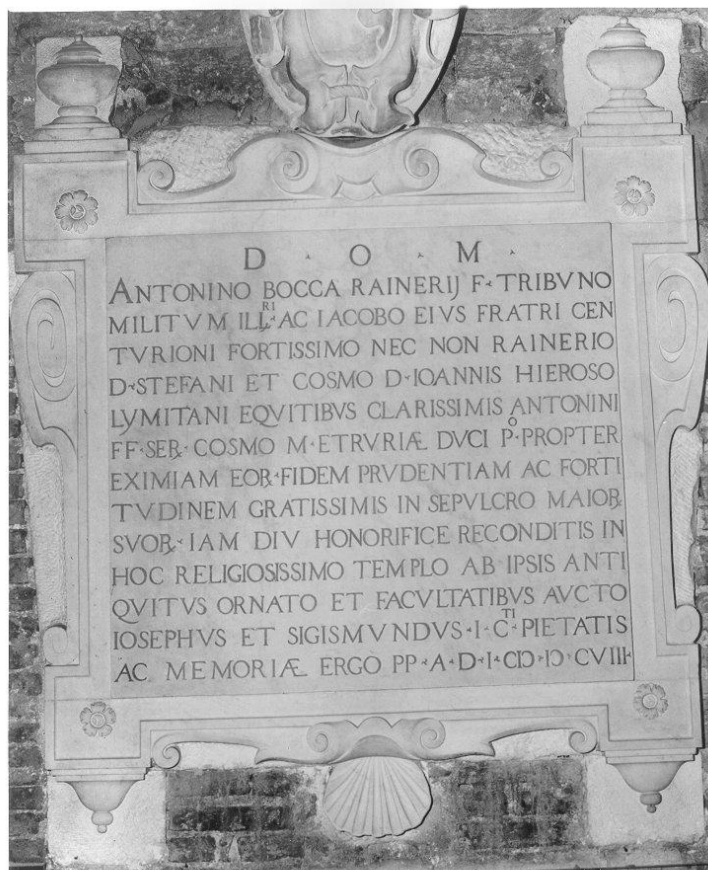 D · O · M ·
ANTONINO BOCCA RAINERIJ F · TRIBVNO
MILITVM ILL^RI · AC IACOBO EIVS FRATRI CEN
TVRIONI FORTISSIMO NEC NON RAINERIO
D · STEFANI ET COSMO D · IOANNIS HIEROSO
LYMITANI EQVITIBVS CLARISSIMIS ANTONINI
FF · SEꝶ · COSMO M · ETRVRIÆ DVCI P^O · PROPTER
EXIMIAM EOꝶ · FIDEM PRVDENTIAM AC FORTI
TVDINEM GRATISSIMIS IN SEPVLCRO MAIOꝶ
SVOꝶ · IAM DIV HONORIFICE RECONDITIS IN
HOC RELIGIOSISSIMO TEMPLO AB IPSIS ANTI
QVITVS ORNATO ET FACVLTATIBVS AVCTO
IOSEPHVS ET SIGISMVNDVS · I · C^TI · PIETATIS
AC MEMORIÆ ERGO PP · A · D · I · CIↃ · IↃ · CVIII ·